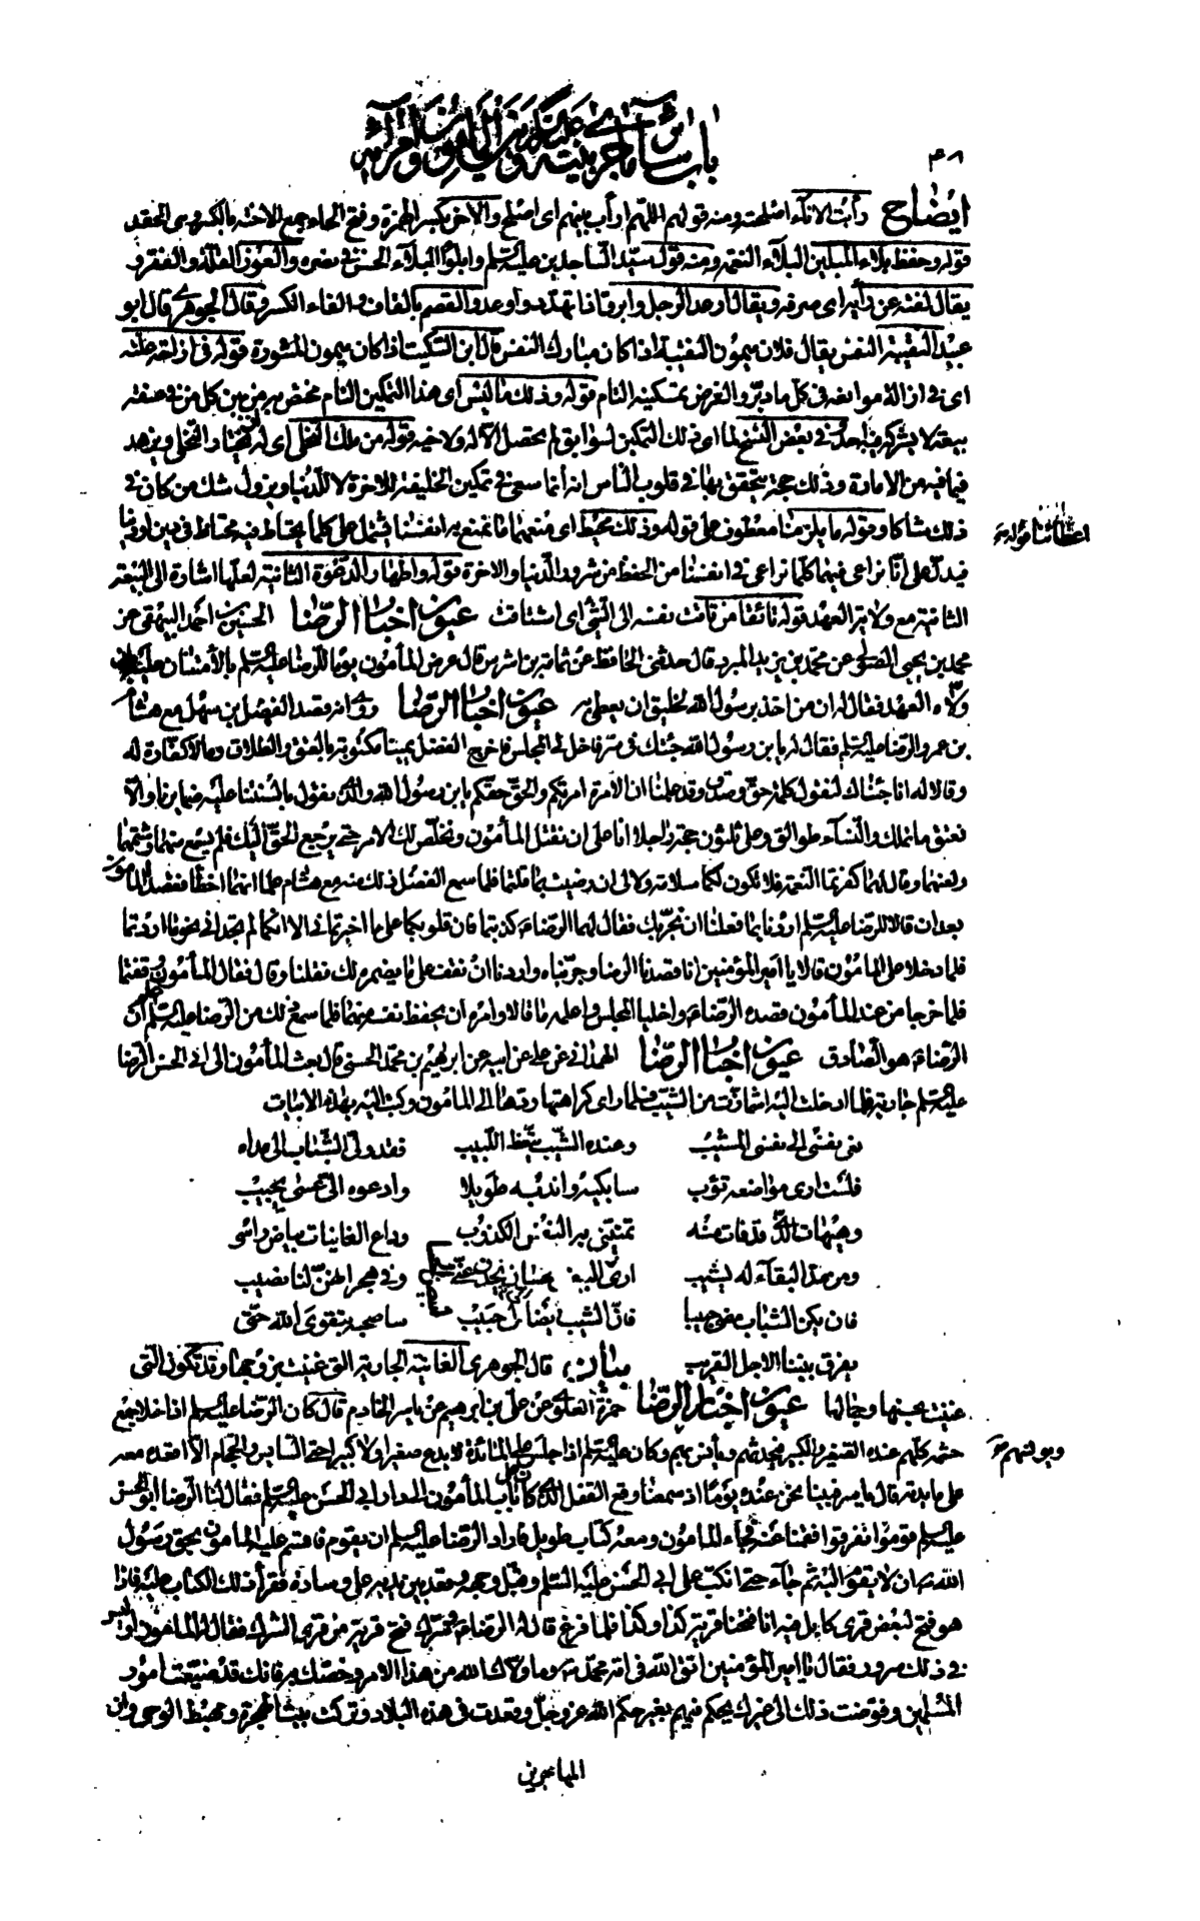 باب سائر ما جرى بينه عليه السلام وبين المأمون وأمرائه
٤٨
ايضاح رأبت الاناء اصلحته ومنه قولهم اللهم ارأب بينهم اى اصلح والاخر بكسر الهمزة وفتح الحاء جمع الاحنة بالكسر وهى الحقد
قوله وحفظ بلاء المبلين البلاء النعمة ومنه قول سيد الساجدين عليه السلم وابلوا البلاء الحسن فى نصره والعوز القلة والفقر و
يقال لفته عن رأيه اى صرفه ويقال ارعد الرجل وابرق اذا تهدد واوعد والقصم بالقاف والفاء الكسر وقال الجوهرى قال ابو
عبيد النقيبة النفس يقال فلان ميمون النقيبة اذا كان مبارك النفس قال ابن السكيت اذا كان ميمون المشورة قوله فى ازاحة علته
اى فى ازالة موانعه فى كل ما دبر والغرض تمكينه التام قوله وذلك ما ليس اى هذا التمكين التام مختص به من بين كل من فى صفقة
بيعته لا يشركه فيه احد فى بعض النسخ لما اى ذلك التمكين لسوابق لم يحصل الا له ولاخيه قوله من ملك التخلى اى له ان يختار التخلى ويزهد
فيما فيه من الامارة وذلك حجة يتحقق بها فى قلوب الناس انه انما سعى فى تمكين الخليفة للاخرة لا للدنيا ويزول شك من كان فى
ذلك شاكا وقوله ما يلزمنا معطوف على قوله وذلك محيط اى متضمنا ما نمنع به انفسنا فيشتمل على كلما يحتاط فيه محتاط فى دين او دنيا
اعطائنا قوله
فيدل على انا نراعى فيهما كلما نراعى فى انفسنا من الحفظ من شرور الدنيا والاخرة قوله واظهار الدعوة الثانية لعلها اشارة الى البيعة
الثانية مع ولاية العهد قوله تائقا من تاقت نفسه الى الشئ اى اشتاقت عيون اخبار الرضا الحسين بن احمد البيهقى عن
محمد بن يحيى الصولى عن محمد بن يزيد المبرد قال حدثنى الحافظ عن ثمامة بن اشرس قال عرض المأمون يوما للرضا عليه السلم بالامتنان عليه بان
ولاه العهد فقال له ان من اخذ برسول الله لخليق ان يعطى به عيون اخبار الرضا روى انه قصد الفضل بن سهل مع هشام
بن عمرو الرضا عليه السلم فقال له يا بن رسول الله جئتك فى سر فاخل لى المجلس فاخرج الفضل يمينا مكتوبة بالعتق والطلاق وما لا كفارة له
وقالا له انا جئناك لنقول كلمة حق وصدق وقد علمنا ان الامرة امرتكم والحق حقكم يا بن رسول الله والذى نقول بالسنتنا عليه ضمايرنا والا
نعتق ما نملك والنساء طوالق وعلى ثلثون حجة راجلا انا على ان نقتل المأمون ونخلص لك الامر حتى يرجع الحق اليك فلم يسمع منهما وشتمهما
ولعنهما وقال لهما كفرتما النعمة فلا تكون لكما سلامة ولا لى ان رضيت بما قلتما فلما سمع الفضل ذلك منه مع هشام علما انهما اخطأ فقصدا المأمون
بعد ان قالا للرضا عليه السلم اردنا بما فعلنا ان نجربك فقال لهما الرضا ع كذبتما فان قلوبكما على ما اخبرتمانى الا انكما لم تجدانى نحو ما اردتما
فلما دخلا على المأمون قالا يا امير المؤمنين انا قصدنا الرضا وجربناه واردنا ان نقف على ما يضمره لك فقلنا وقال فقال المأمون وفقتما
فلما خرجا من عند المأمون قصده الرضا ع واخليا المجلس واعلمه ما قالا وامره ان يحفظ نفسه منهما فلما سمع ذلك من الرضا عليه السلم علم ان
الرضا ع هو الصادق عيون اخبار الرضا الهمدانى عن على عن ابيه عن ابرهيم بن محمد الحسنى قال بعث المأمون الى ابى الحسن الرضا
عليه السلم جارية فلما ادخلت اليه اشمازت من الشيب فلما راى كراهتها ردها الى المامون وكتب اليه بهذه الابيات
نعى نفسى الى نفسى المشيب وعند الشيب يتعظ اللبيب فقد ولى الشباب الى مداه
فلست ارى مواضعه تؤب سابكيه واندبه طويلا وادعوه الى عسى يجيب
وهيهات الذى قد فات منه تمنينى به النفس الكذوب وراع الغانيات بياض راسى
ومن مد البقاء له يشيب ارى البيض الحسان يحدن عنى وفى هجرانهن لنا نصيب
فان يكن الشباب مضى حبيبا فان الشيب ايضا لى حبيب ساصحبه بتقوى الله حتى
يفرق بيننا الاجل القريب بيان، قال الجوهرى الغانية الجارية التى غنيت بزوجها وقد تكون التى
غنيت بحسنها وجمالها عيون اخبار الرضا حمزة العلوى عن على بن ابرهيم عن ياسر الخادم قال كان الرضا عليه السلم اذا خلا جمع
حشمه كلهم عنده الصغير والكبير فيحدثهم ويأنس بهم وكان عليه السلم اذا جلس على المائدة لا يدع صغيرا ولا كبيرا حتى السايس والحجام الا اقعده معه
ويونسهم
على مايدته قال ياسر فبينا نحن عنده يوما اذ سمعنا وقع القفل الذى كان على باب المأمون الى دار ابى الحسن عليه السلم فقال لنا الرضا ابو الحسن
عليه السلم قوموا تفرقوا فقمنا عنه فجاء المأمون ومعه كتاب طويل فاراد الرضا عليه السلم ان يقوم فاقسم عليه المامون بحق رسول
الله ص ان لا يقوم اليه ثم جاء حتى انكب على ابى الحسن عليه السلم وقبل وجهه وقعد بين يديه على وسادة فقرأ ذلك الكتاب عليه فاذا
هو فتح لبعض قرى كابل فيه انا فتحنا قرية كذا وكذا فلما فرغ قال له الرضا ع وسرك فتح قرية من قرى الشرك فقال له المامون اوليس
فى ذلك سرور فقال يا امير المؤمنين اتق الله فى امة محمد ص وما ولاك الله من هذا الامر وخصك به فانك قد ضيعت امور
المسلمين وفوضت ذلك الى غيرك يحكم فيهم بغير حكم الله عز وجل وقعدت فى هذه البلاد وتركت بيت الهجرة ومهبط الوحى وان
المهاجرين